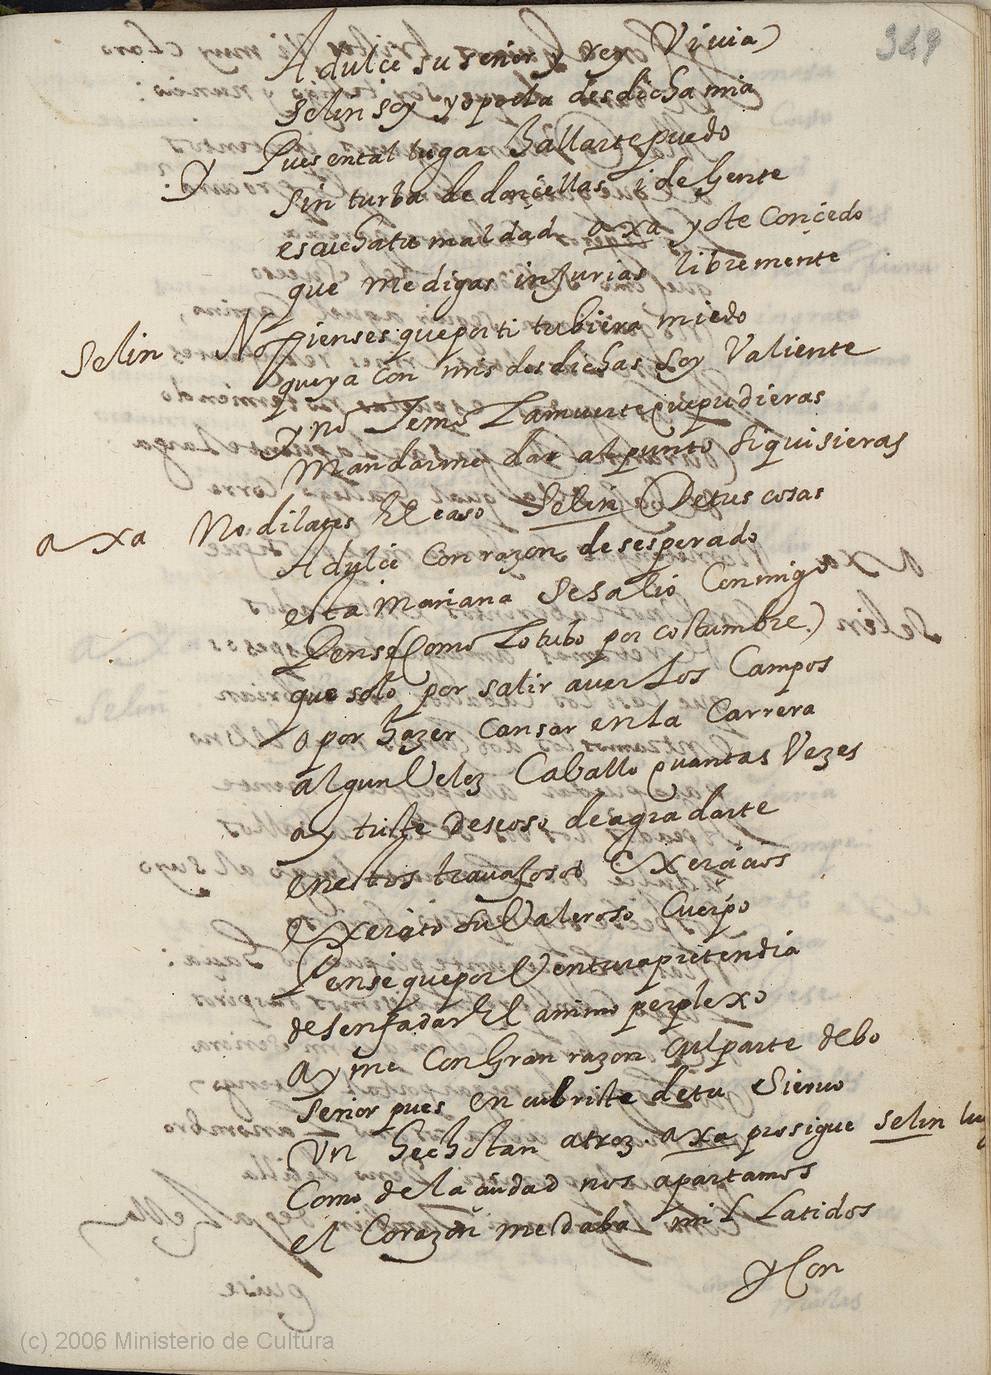 349
Adulce su señor y Rey Viuia)
Selin soy yo por la desdicha mia
Pues en tal lugar hallarte puedo
Sin turba de donçellas i de Gente
escucha tu maldad axa yo te Conçedo
que me digas injurias libremente
Selin No pienses que por ti tubiera miedo
que ya con mis desdichas soy Valiente
y no Temo La muerte que pudieras
Mandarme dar al punto si quisieras
axa No dilates El caso Selin De tus cosas
Adulce Con razon desesperado
esta mañana se salio Conmigo
Pense (Como Lo tubo por costumbre)
que solo por salir a uer los Campos
o por hazer Cansar en la Carrera
algun Veloz Caballo quantas Vezes
ay triste Deseoso de agradarte
en estos trauajosos Exerçiçios
Exerçito su Valeroso Cuerpo
Pense que por Ventura pretendia
desenfadar El animo perplexo
ay me Con Gran razon culparte debo
Señor pues encubriste de tu Sieruo
Vn hecho tan atroz. axa prosigue selin
Como de la çiudad nos apartamos
el Corazon me Daba mil Latidos
y Con
(c) 2006 Ministerio de Cultura